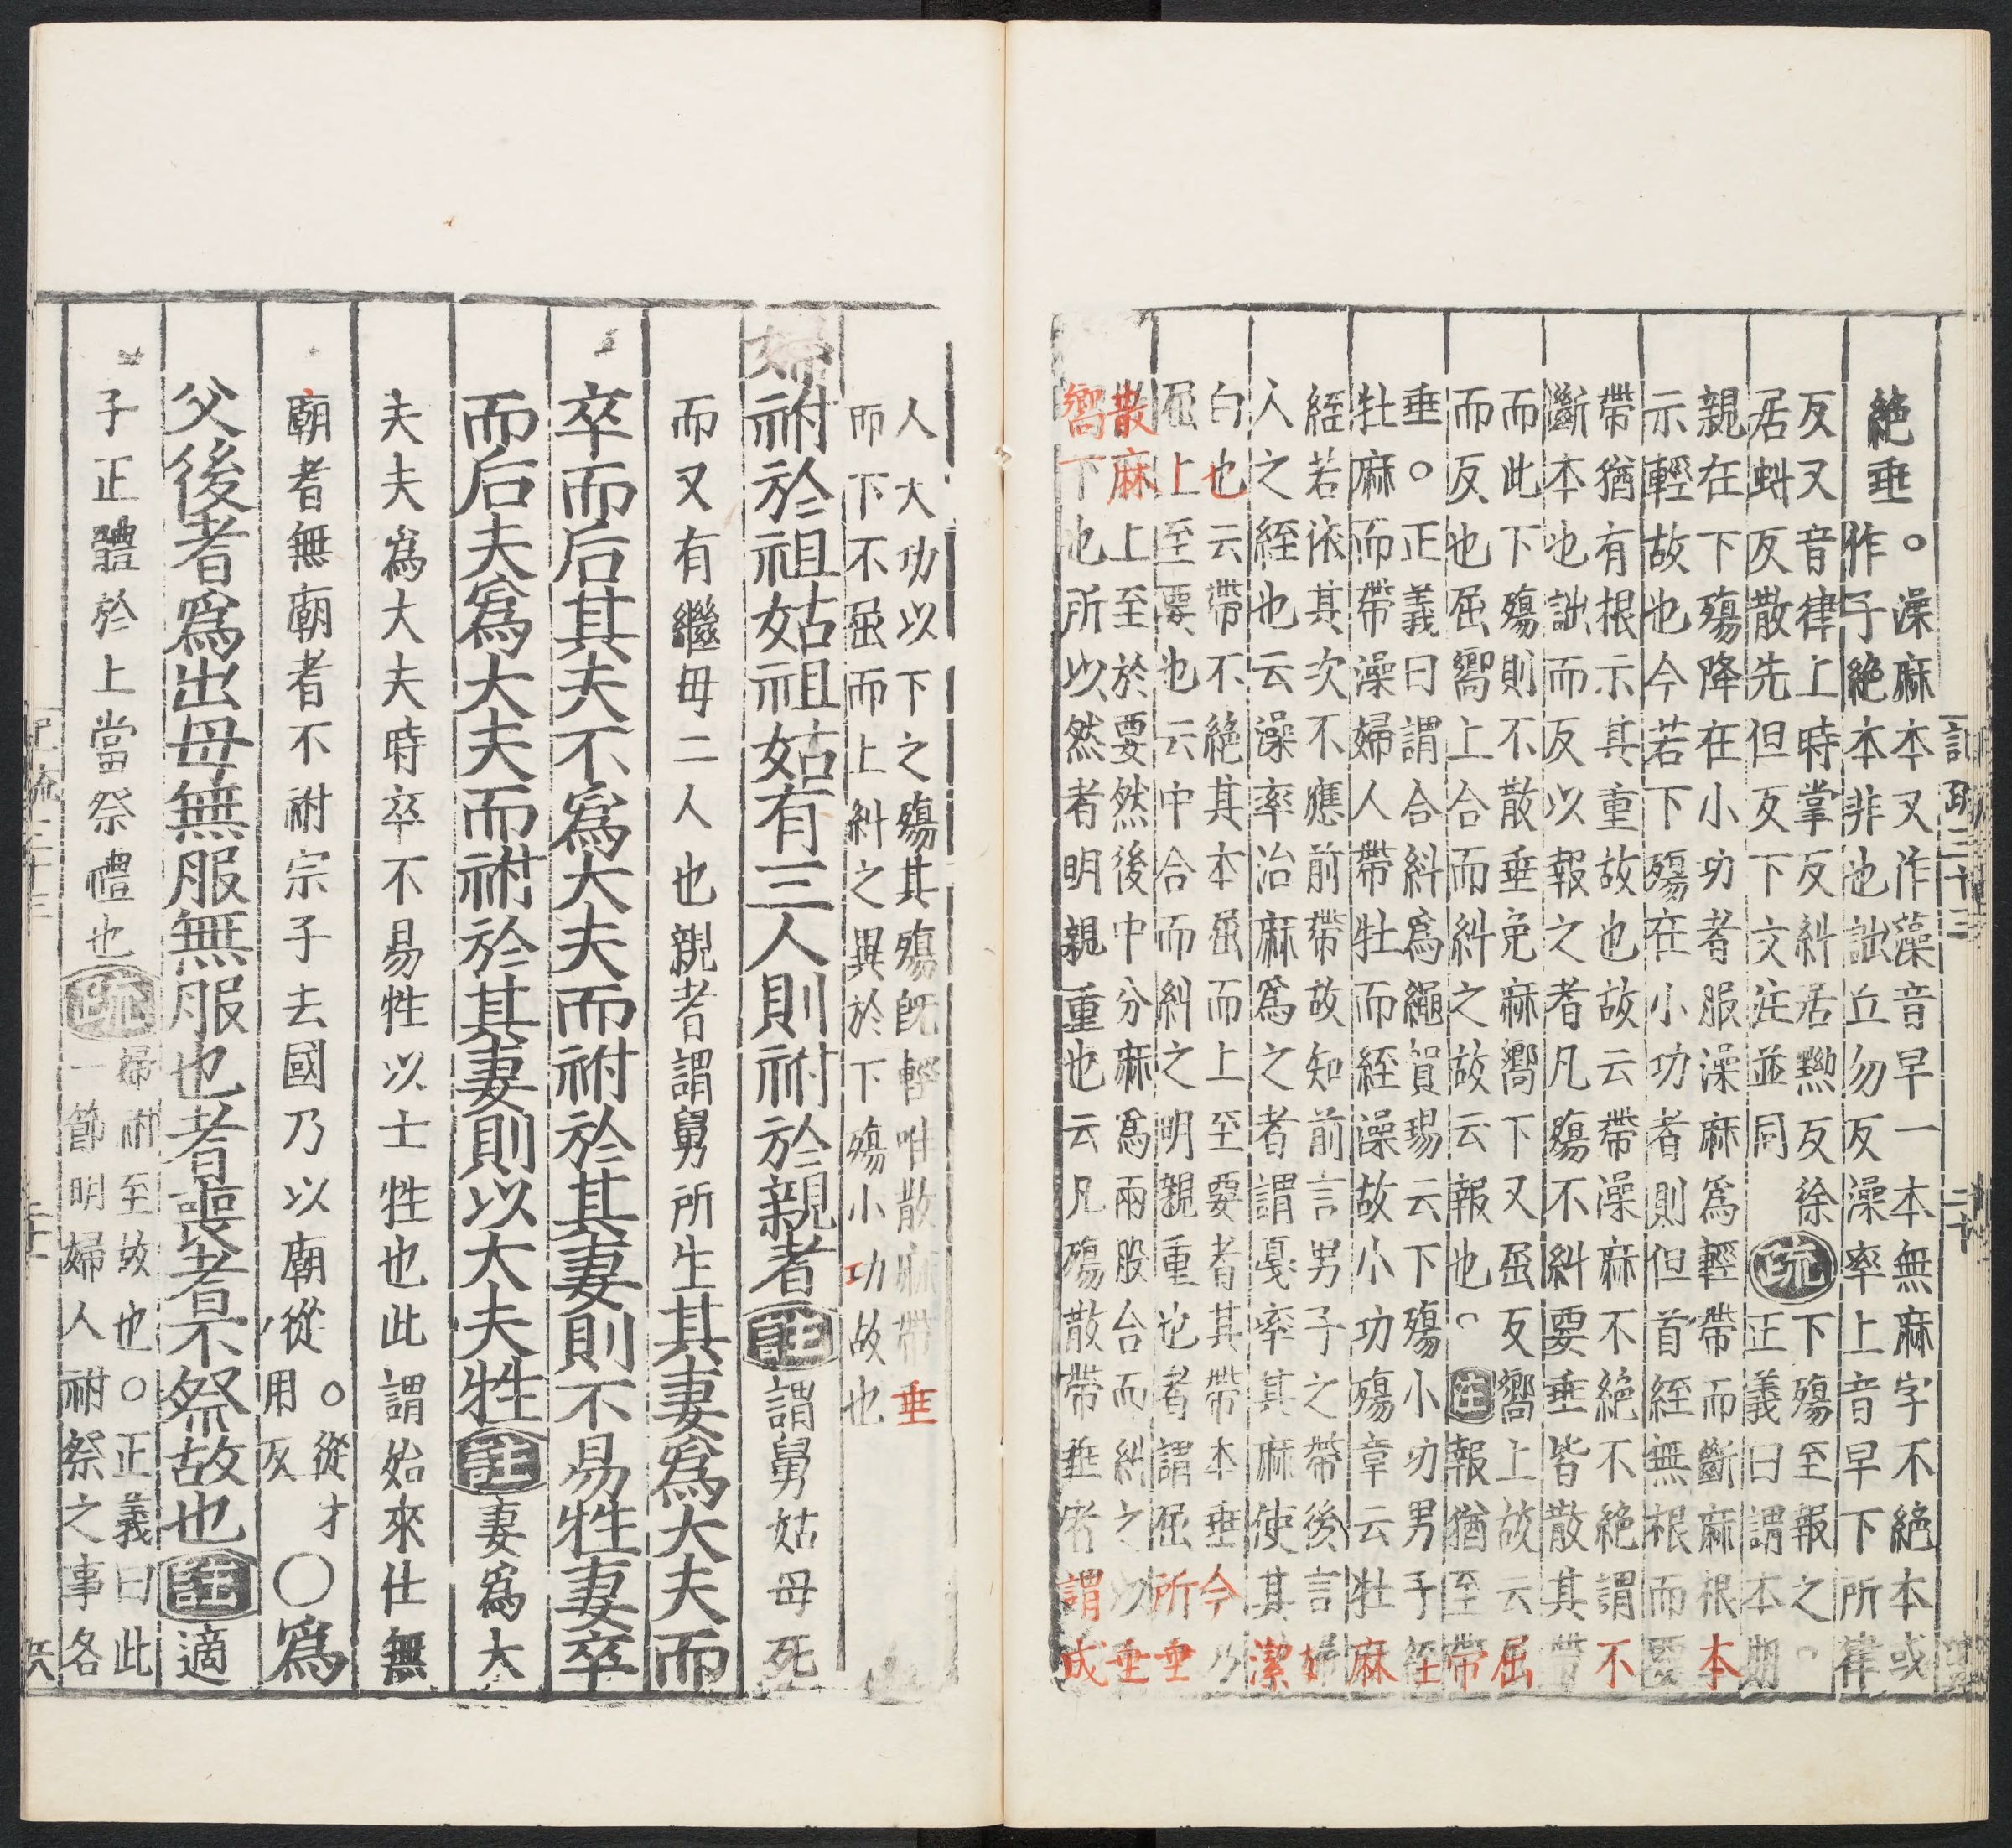 記疏三十三 二十
絕垂
。澡麻本又作藻音早一本無麻字不絕本或
作子絕本非也詘丘勿反澡率上音早下所律
反又音律上時掌反糾居黝反徐
居虯反散先但反下文注並同
疏
下殤至報之。
正義曰謂本期
親在下殤降在小功者服澡麻爲輕帶而斷麻根本
示輕故也今若下殤在小功者則但首絰無根而要
帶猶有根示其重故也故云帶澡麻不絕不絕謂不
斷本也詘而反以報之者凡殤不糾要垂皆散其帶
而此下殤則不散垂免麻嚮下又屈反嚮上故云屈
而反也屈嚮上合而糾之故云報也。注報猶至帶
垂。正義曰謂合糾爲繩賀瑒云下殤小功男子絰
牡麻而帶澡婦人帶牡而絰澡故小功殤章云牡麻
絰若依其次不應前帶故知前言男子之帶後言婦
人之絰也云澡率治麻爲之者謂戛率其麻使其潔
白也云帶不絕其本屈而上至要者其帶本垂今乃
屈上至要也云中合而糾之明親重也者謂屈所垂
散麻上至於要然後中分麻爲兩股合而糾之以垂
嚮下也所以然者明親重也云凡殤散帶垂者謂成
人大功以下之殤其殤旣輕唯散麻帶垂
而下不屈而上糾之異於下殤小功故也
婦祔於祖姑祖姑有三人則祔於親者註謂舅姑母死
而又有繼母二人也親者謂舅所生其妻爲大夫而
卒而后其夫不爲大夫而祔於其妻則不易牲妻卒
而后夫爲大夫而祔於其妻則以大夫牲註妻爲大
夫夫爲大夫時卒不易牲以士牲也此謂始來仕無
廟者無廟者不祔宗子去國乃以廟從
。從才
用反
○爲
父後者爲出母無服無服也者喪者不祭故也註適
子正體於上當祭禮也疏
婦祔至故也。正義曰此
一節明婦人祔祭之事各
記疏三十三